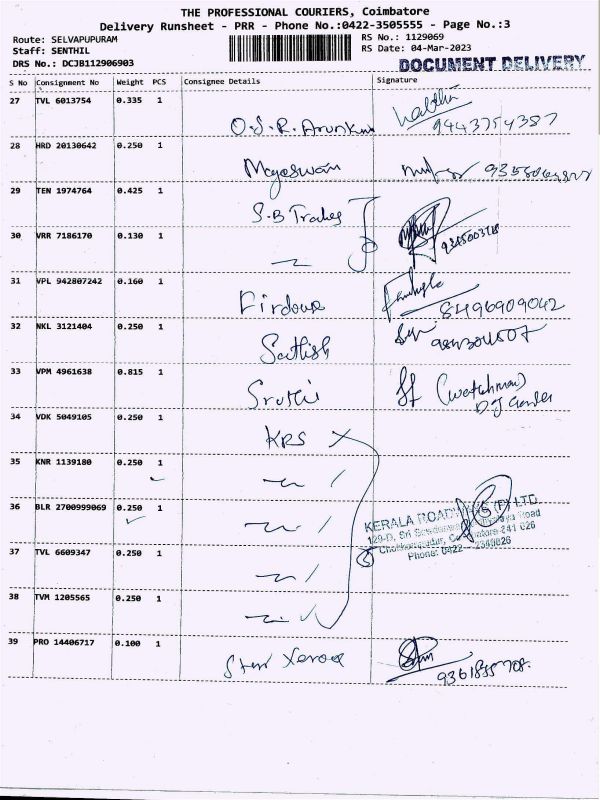 THE PROFESSIONAL COURIERS, Coimbatore
Delivery Runsheet - PRR - Phone No.:0422-3505555 - Page No.:3
Route: SELVAPUPURAM
RS No.: 1129069
Staff: SENTHIL
RS Date: 04-Mar-2023
DRS No.: DCJB112906903
DOCUMENT DELIVERY
S No Consignment No Weight PCS Consignee Details Signature
27 TVL 6013754 0.335 1
O.S.R. Arunkum
9443754387
28 HRD 20130642 0.250 1
29 TEN 1974764 0.425 1
S.B Trades
30 VRR 7186170 0.130 1
31 VPL 942807242 0.160 1
Firdous
8496909042
32 NKL 3121404 0.250 1
Sathish
33 VPM 4961638 0.815 1
Sruthi
(watchman)
34 VDK 5049105 0.250 1
KRS
35 KNR 1139180 0.250 1
36 BLR 2700999069 0.250 1
KERALA ROADWAYS (P) LTD
129-D, Sri
Phone: 0422
37 TVL 6609347 0.250 1
5
38 TVM 1205565 0.250 1
39 PRO 14406717 0.100 1
Xerox